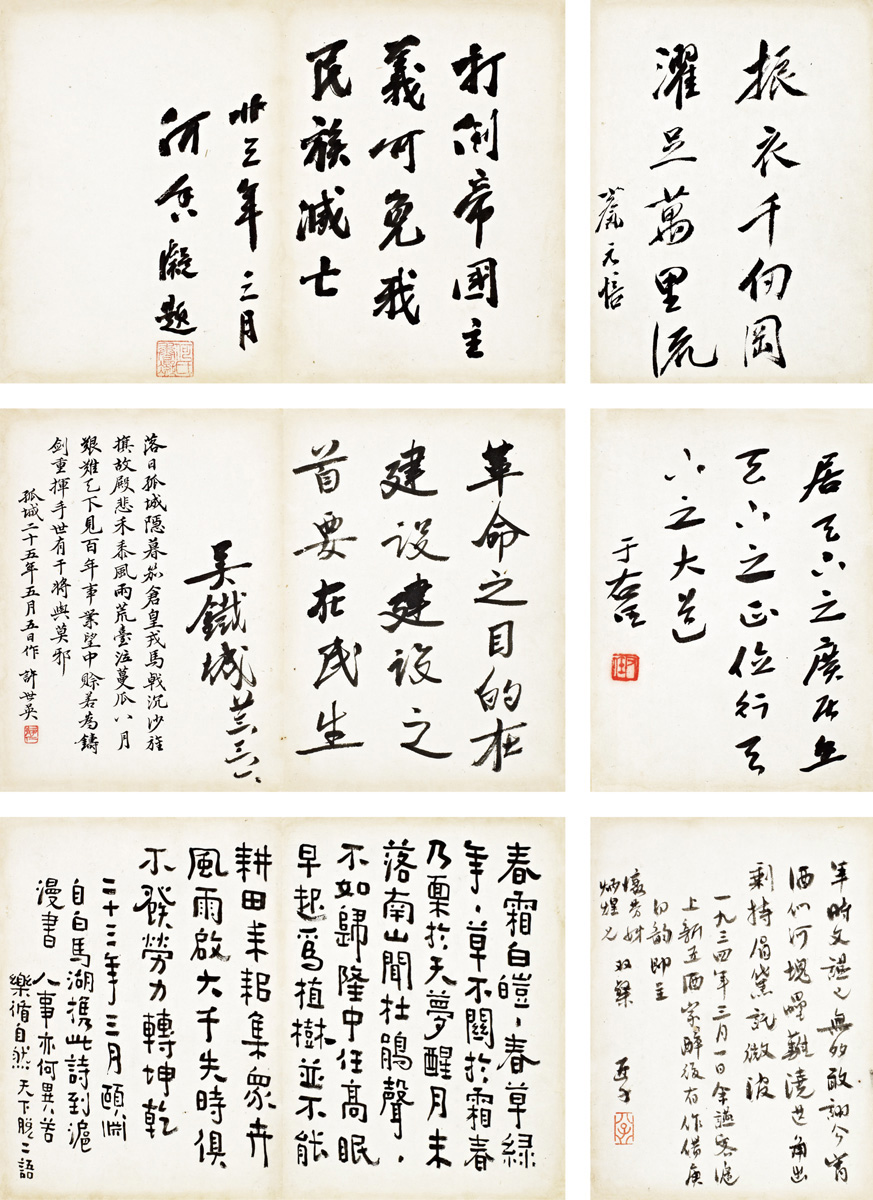 打倒帝國主
義何免我
民族滅亡
廿三年三月
何香凝題
振衣千仞岡
濯足萬里流
黨元培
革命之目的在
建设建设之
首要在民生
吴鐵城
落日孤城隱暮笳倉皇戎馬戟沉沙旌
旗故殿悲禾黍風雨荒臺泣蔓瓜八月
艱難天下見百年事業望中賒若為鑄
劍重揮手世有干將與莫邪
孤城二十五年五月五日作 許世英
居天下之廣居立
天下之正位行天
下之大道
于右任
春霜白皚春草綠
年年草不關於霜春
乃稟於天夢醒月未
落南山聞杜鵑聲
不如歸隆中任高眠
早起為植樹並不能
耕田耒耜集衆卉
風雨啟大千失時俱
不發勞力轉坤乾
二十三年三月頤淵
自白馬湖攜此詩到滬
漫書
人事亦何異若
樂循自然天下脫二語
年時文讌已無多敢詡今宵
酒似河塊壘難澆芒角出
剩持眉黛託微波
一九三四年三月一日余讌客滬
上新亞酒家醉後有作借庚
白韵即呈
懷芳姊
炳煌兄
双粲
亞子